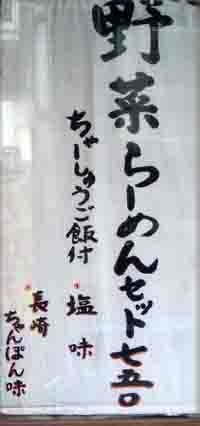 野菜らーめんセット七五〇
ちゃーしゅうご飯付
塩味
長崎
ちゃんぽん味